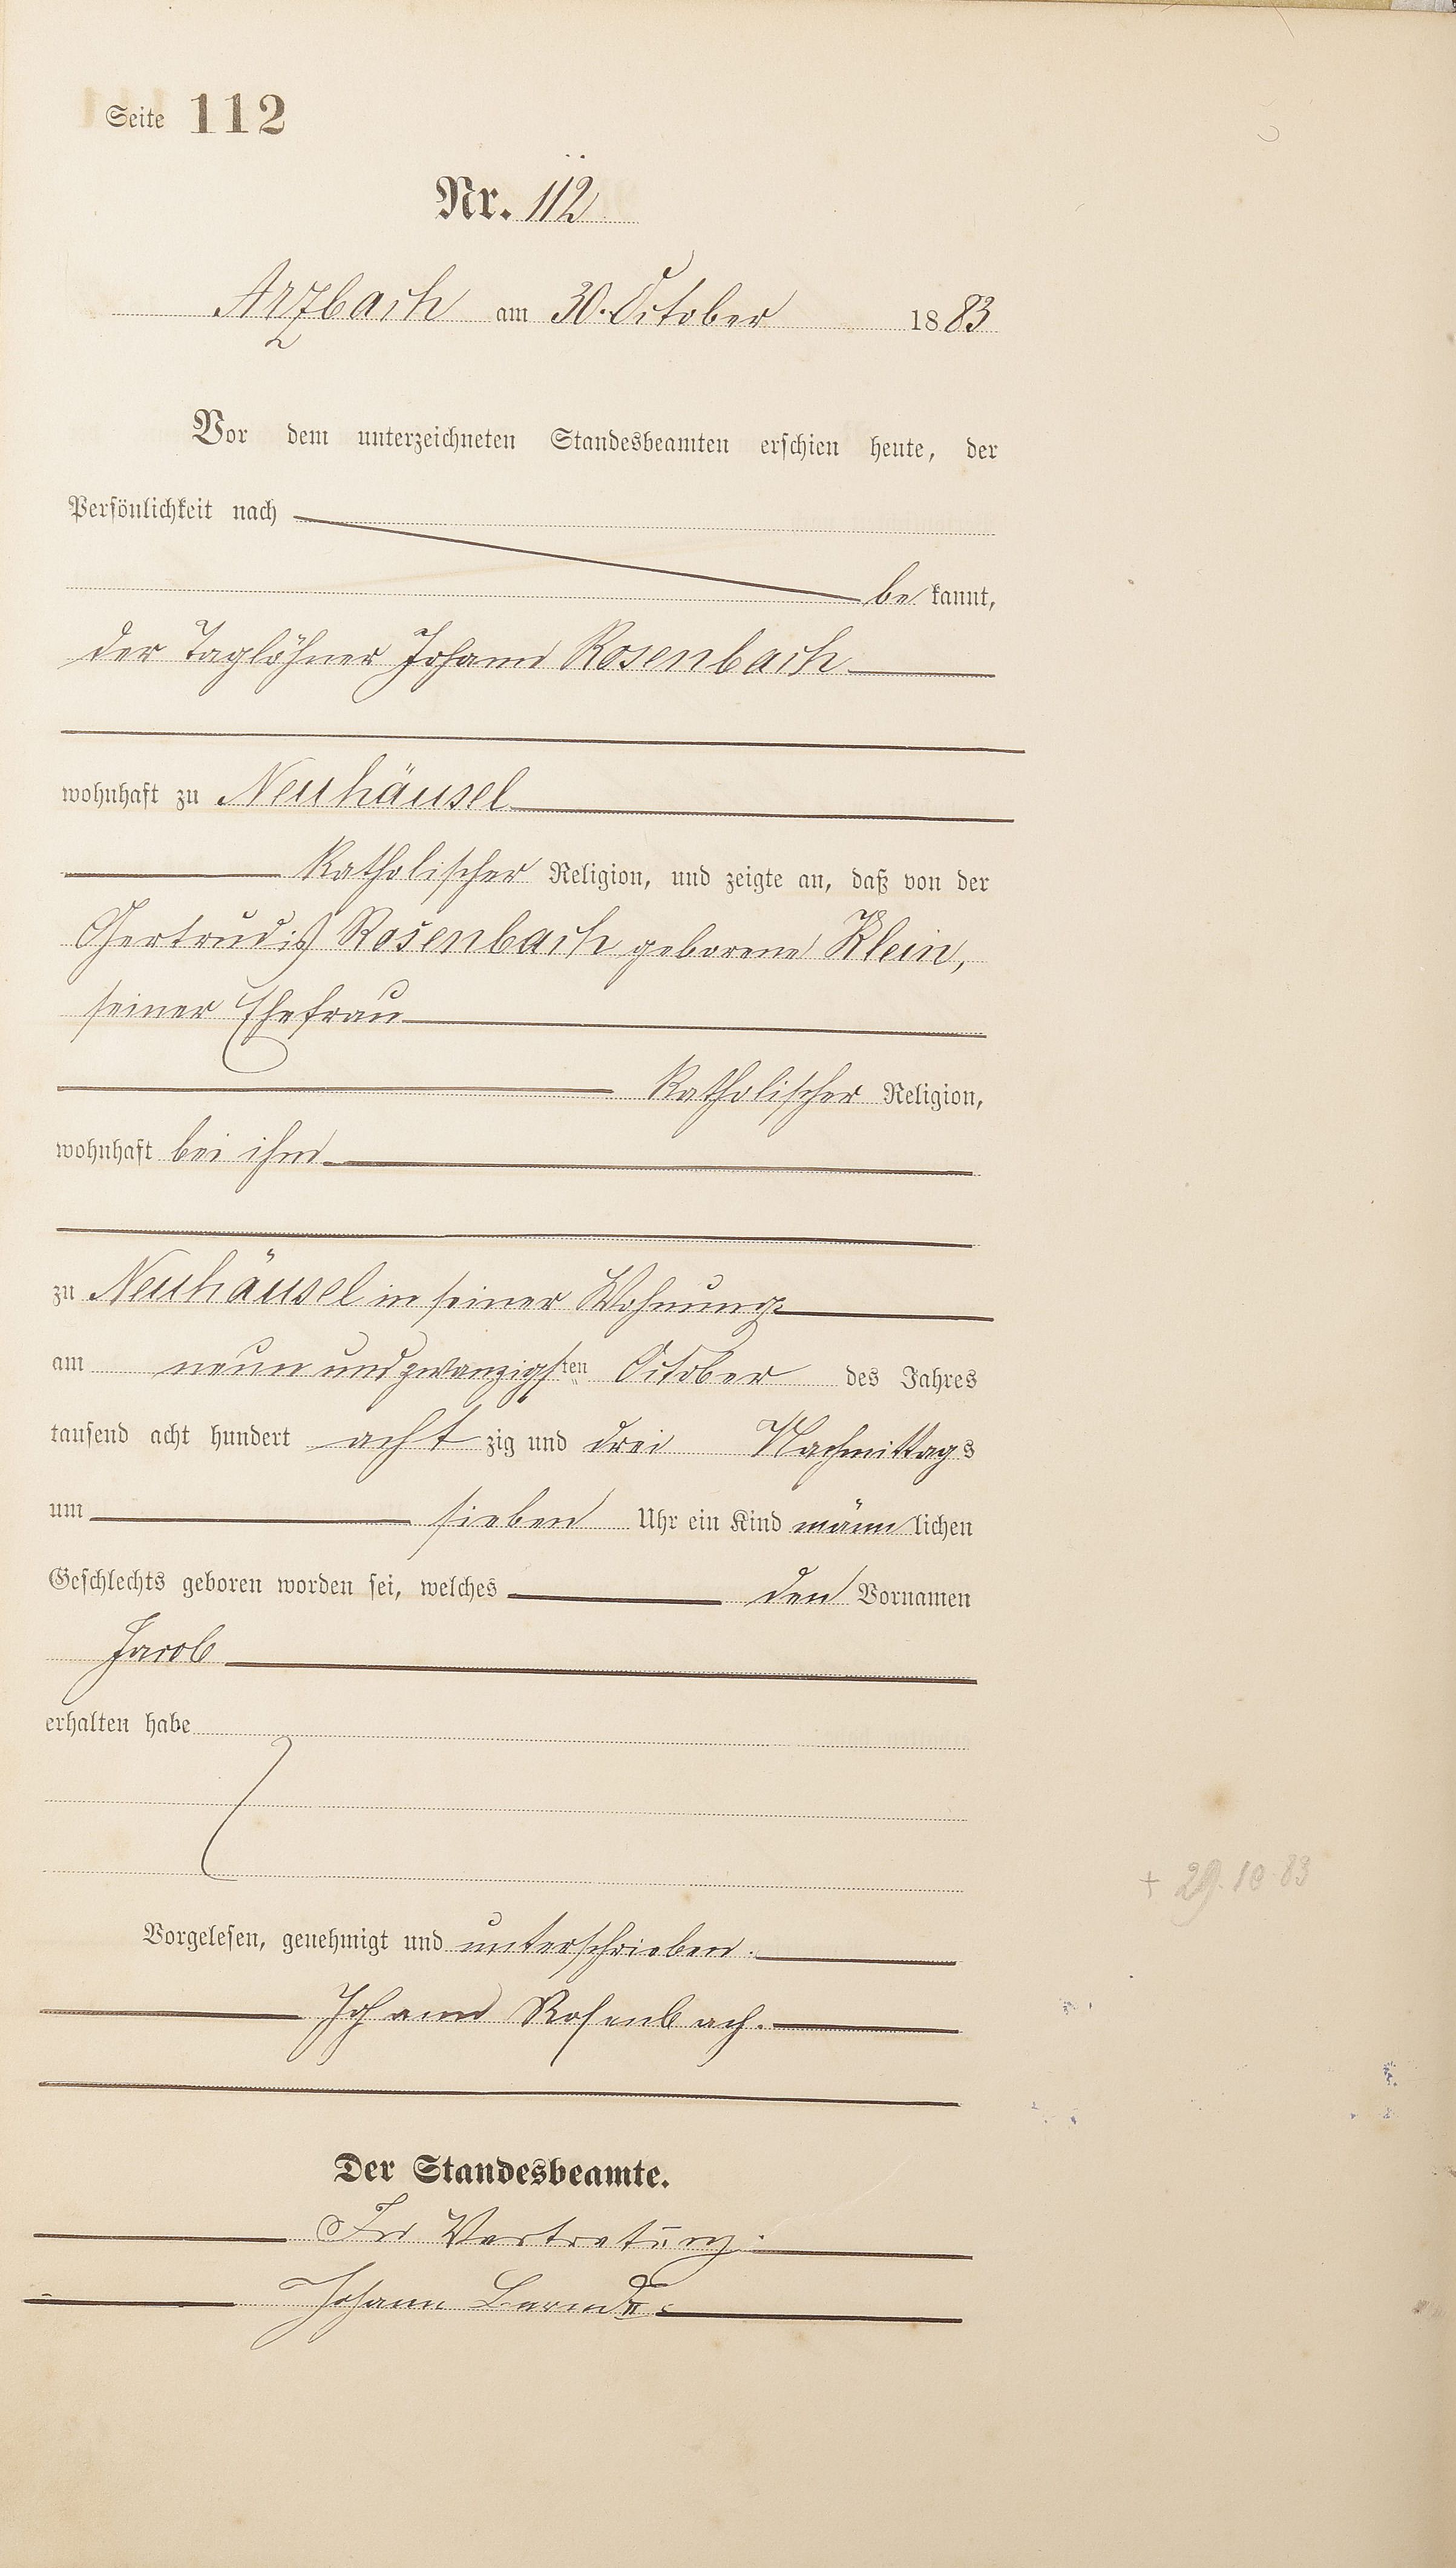 Seite 112
Nr. 112
Arzbach am 30. October 1883
Vor dem unterzeichneten Standesbeamten erschien heute, der
Persönlichkeit nach
be kannt,
der Taglöhner Johann Rosenbach
wohnhaft zu Neuhäusel
katholischer Religion, und zeigte an, daß von der
Gertrudis Rosenbach geborene Klein,
seiner Ehefrau
katholischer Religion,
wohnhaft bei ihm
zu Neuhäusel in seiner Wohnung
am neun und zwanzigsten October des Jahres
tausend acht hundert acht zig und drei Nachmittags
um sieben Uhr ein Kind männ lichen
Geschlechts geboren worden sei, welches den Vornamen
Jacob
erhalten habe
+ 29.10.83
Vorgelesen, genehmigt und unterschrieben.
Johann Rosenbach.
Der Standesbeamte.
In Vertretung.
Johann